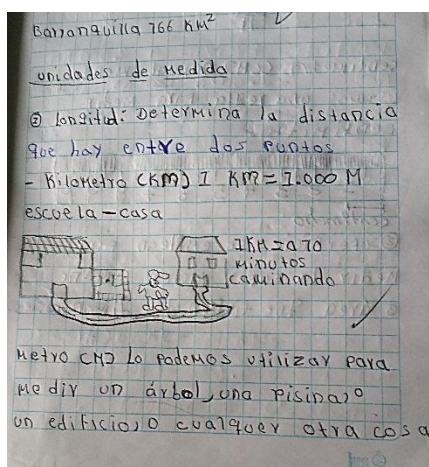 Barranquilla 766 KM²
unidades de medida
② longitud: Determina la distancia
que hay entre dos puntos
- Kilometro (KM) 1 KM = 1.000 M
escuela - casa
1KM = a 10
minutos
caminando
Metro (M) Lo podemos utilizar para
medir un árbol, una pisina, o
un edificio, o cualquer otra cosa